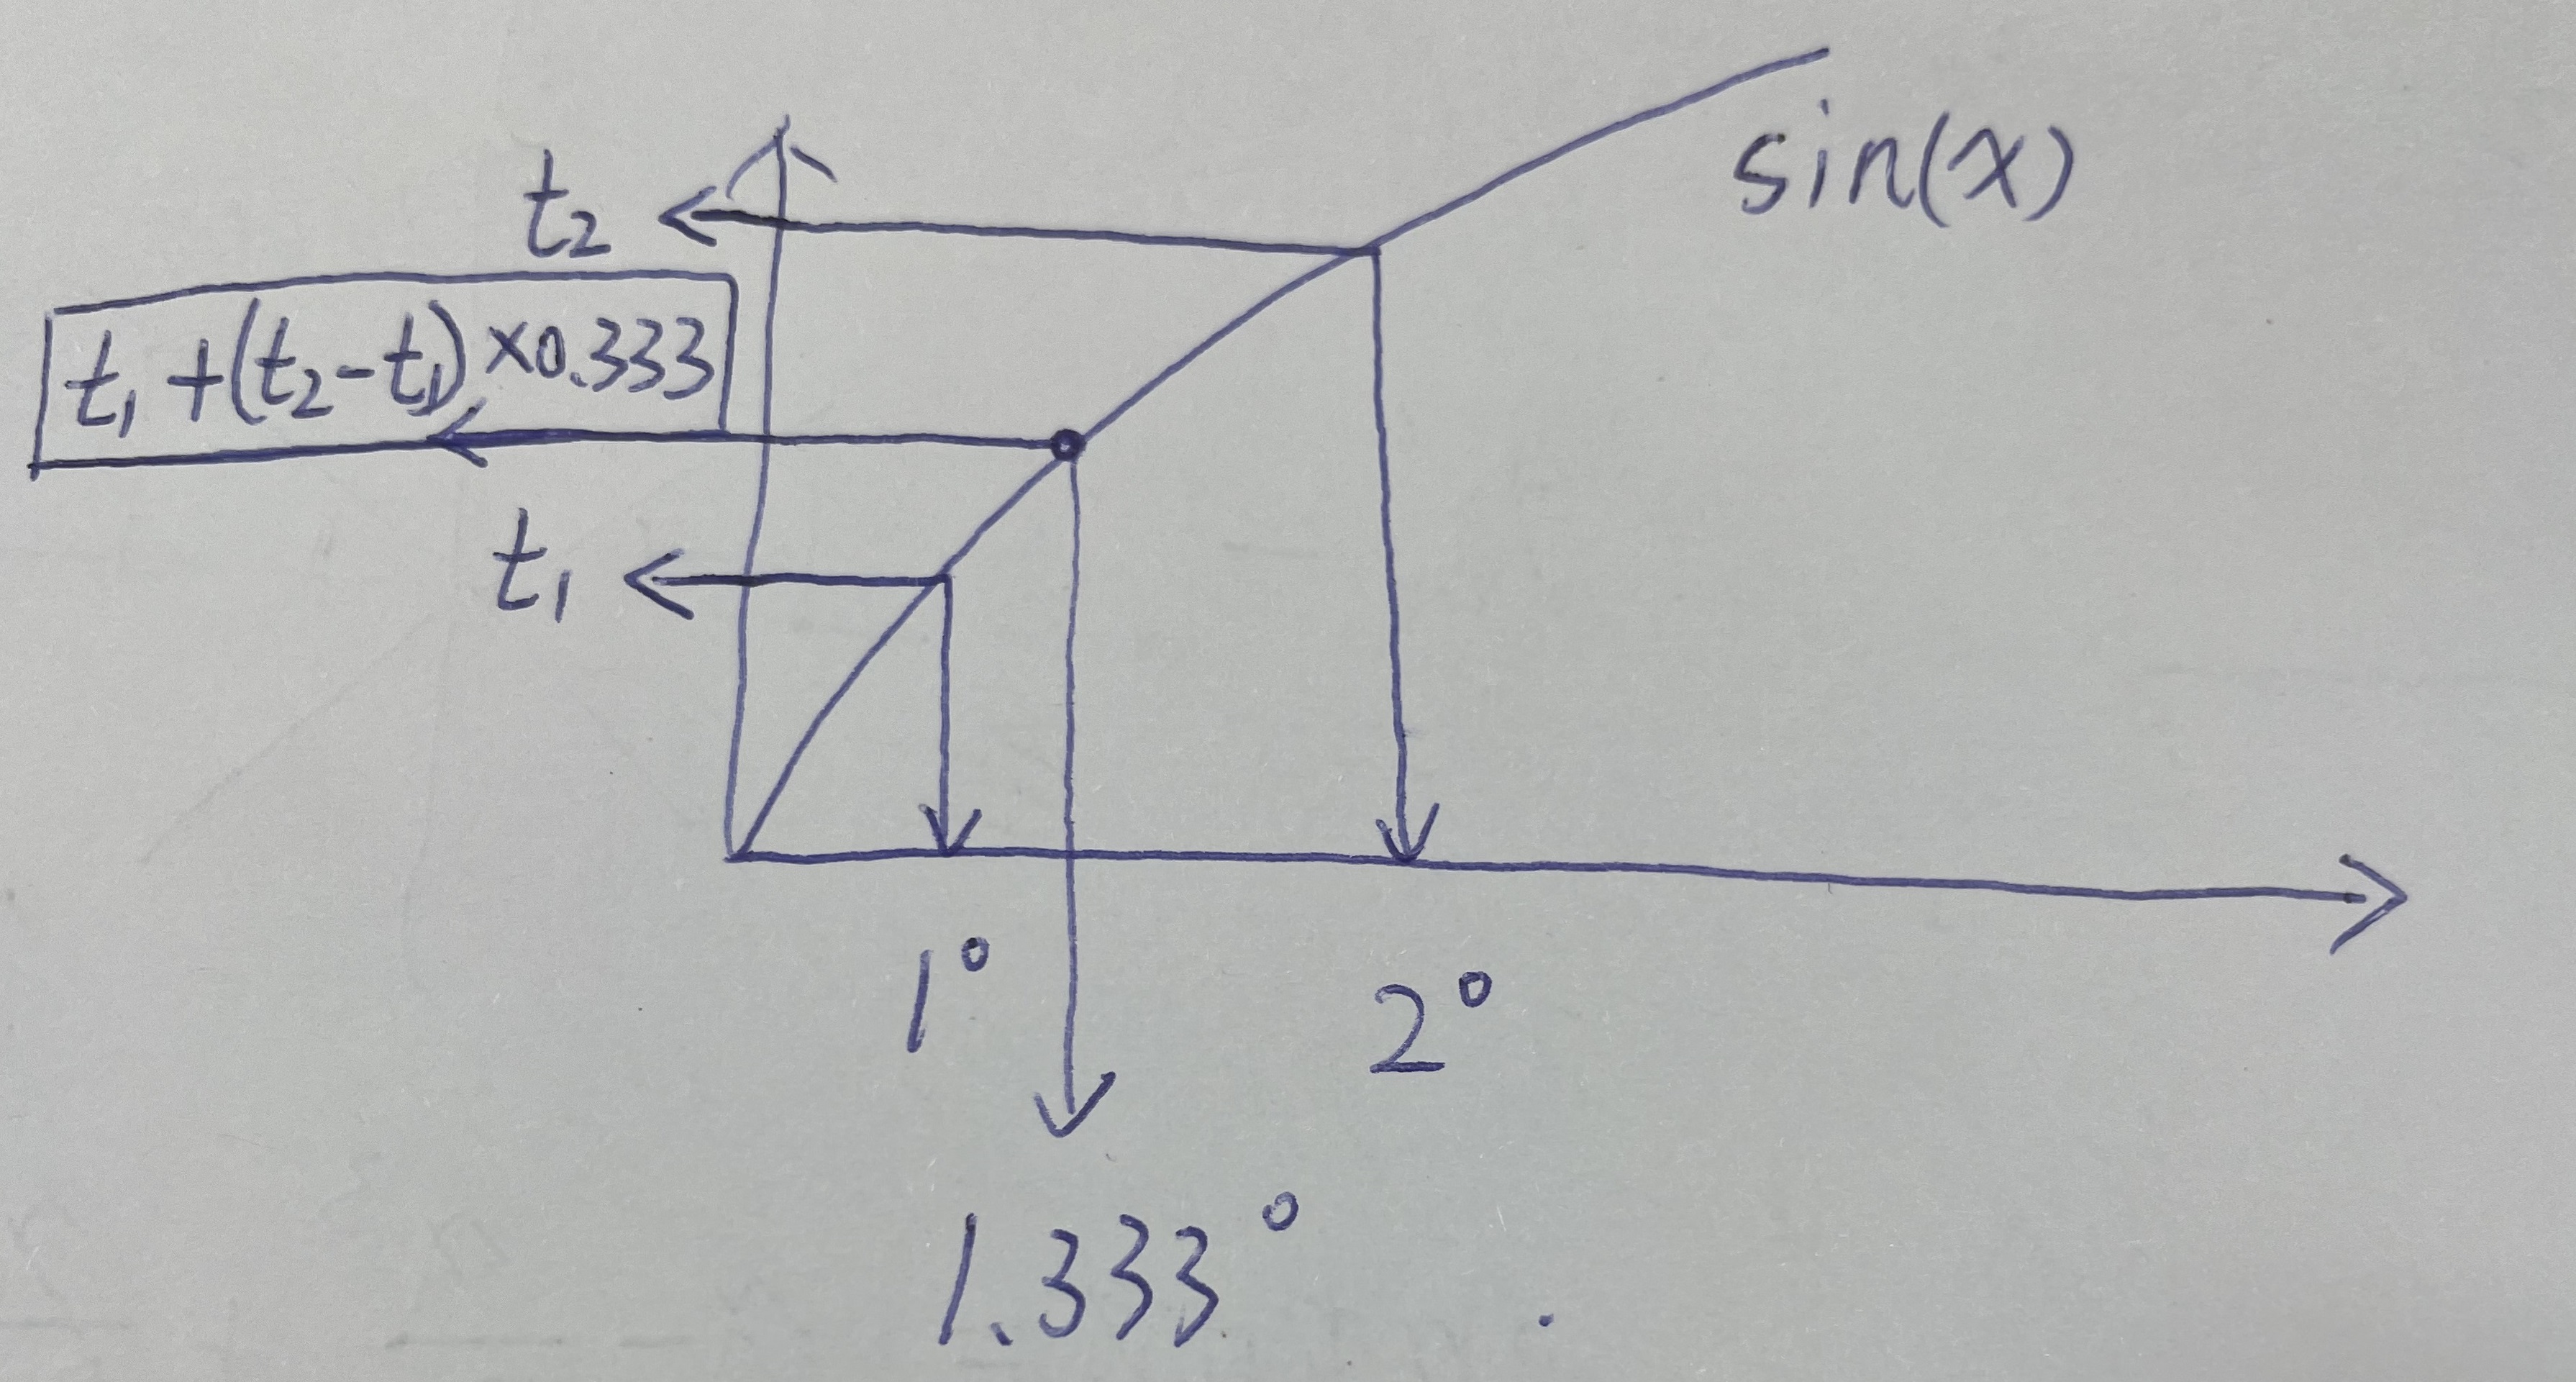 sin(x)
t₂
t₁+(t₂-t₁)×0.333
t₁
1°
2°
1.333°